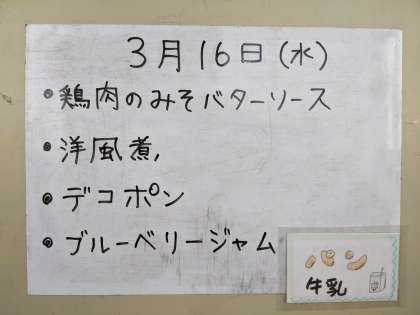 3月16日(水)
・鶏肉のみそバターソース
・洋風煮
・デコポン
・ブルーベリージャム
パン
牛乳